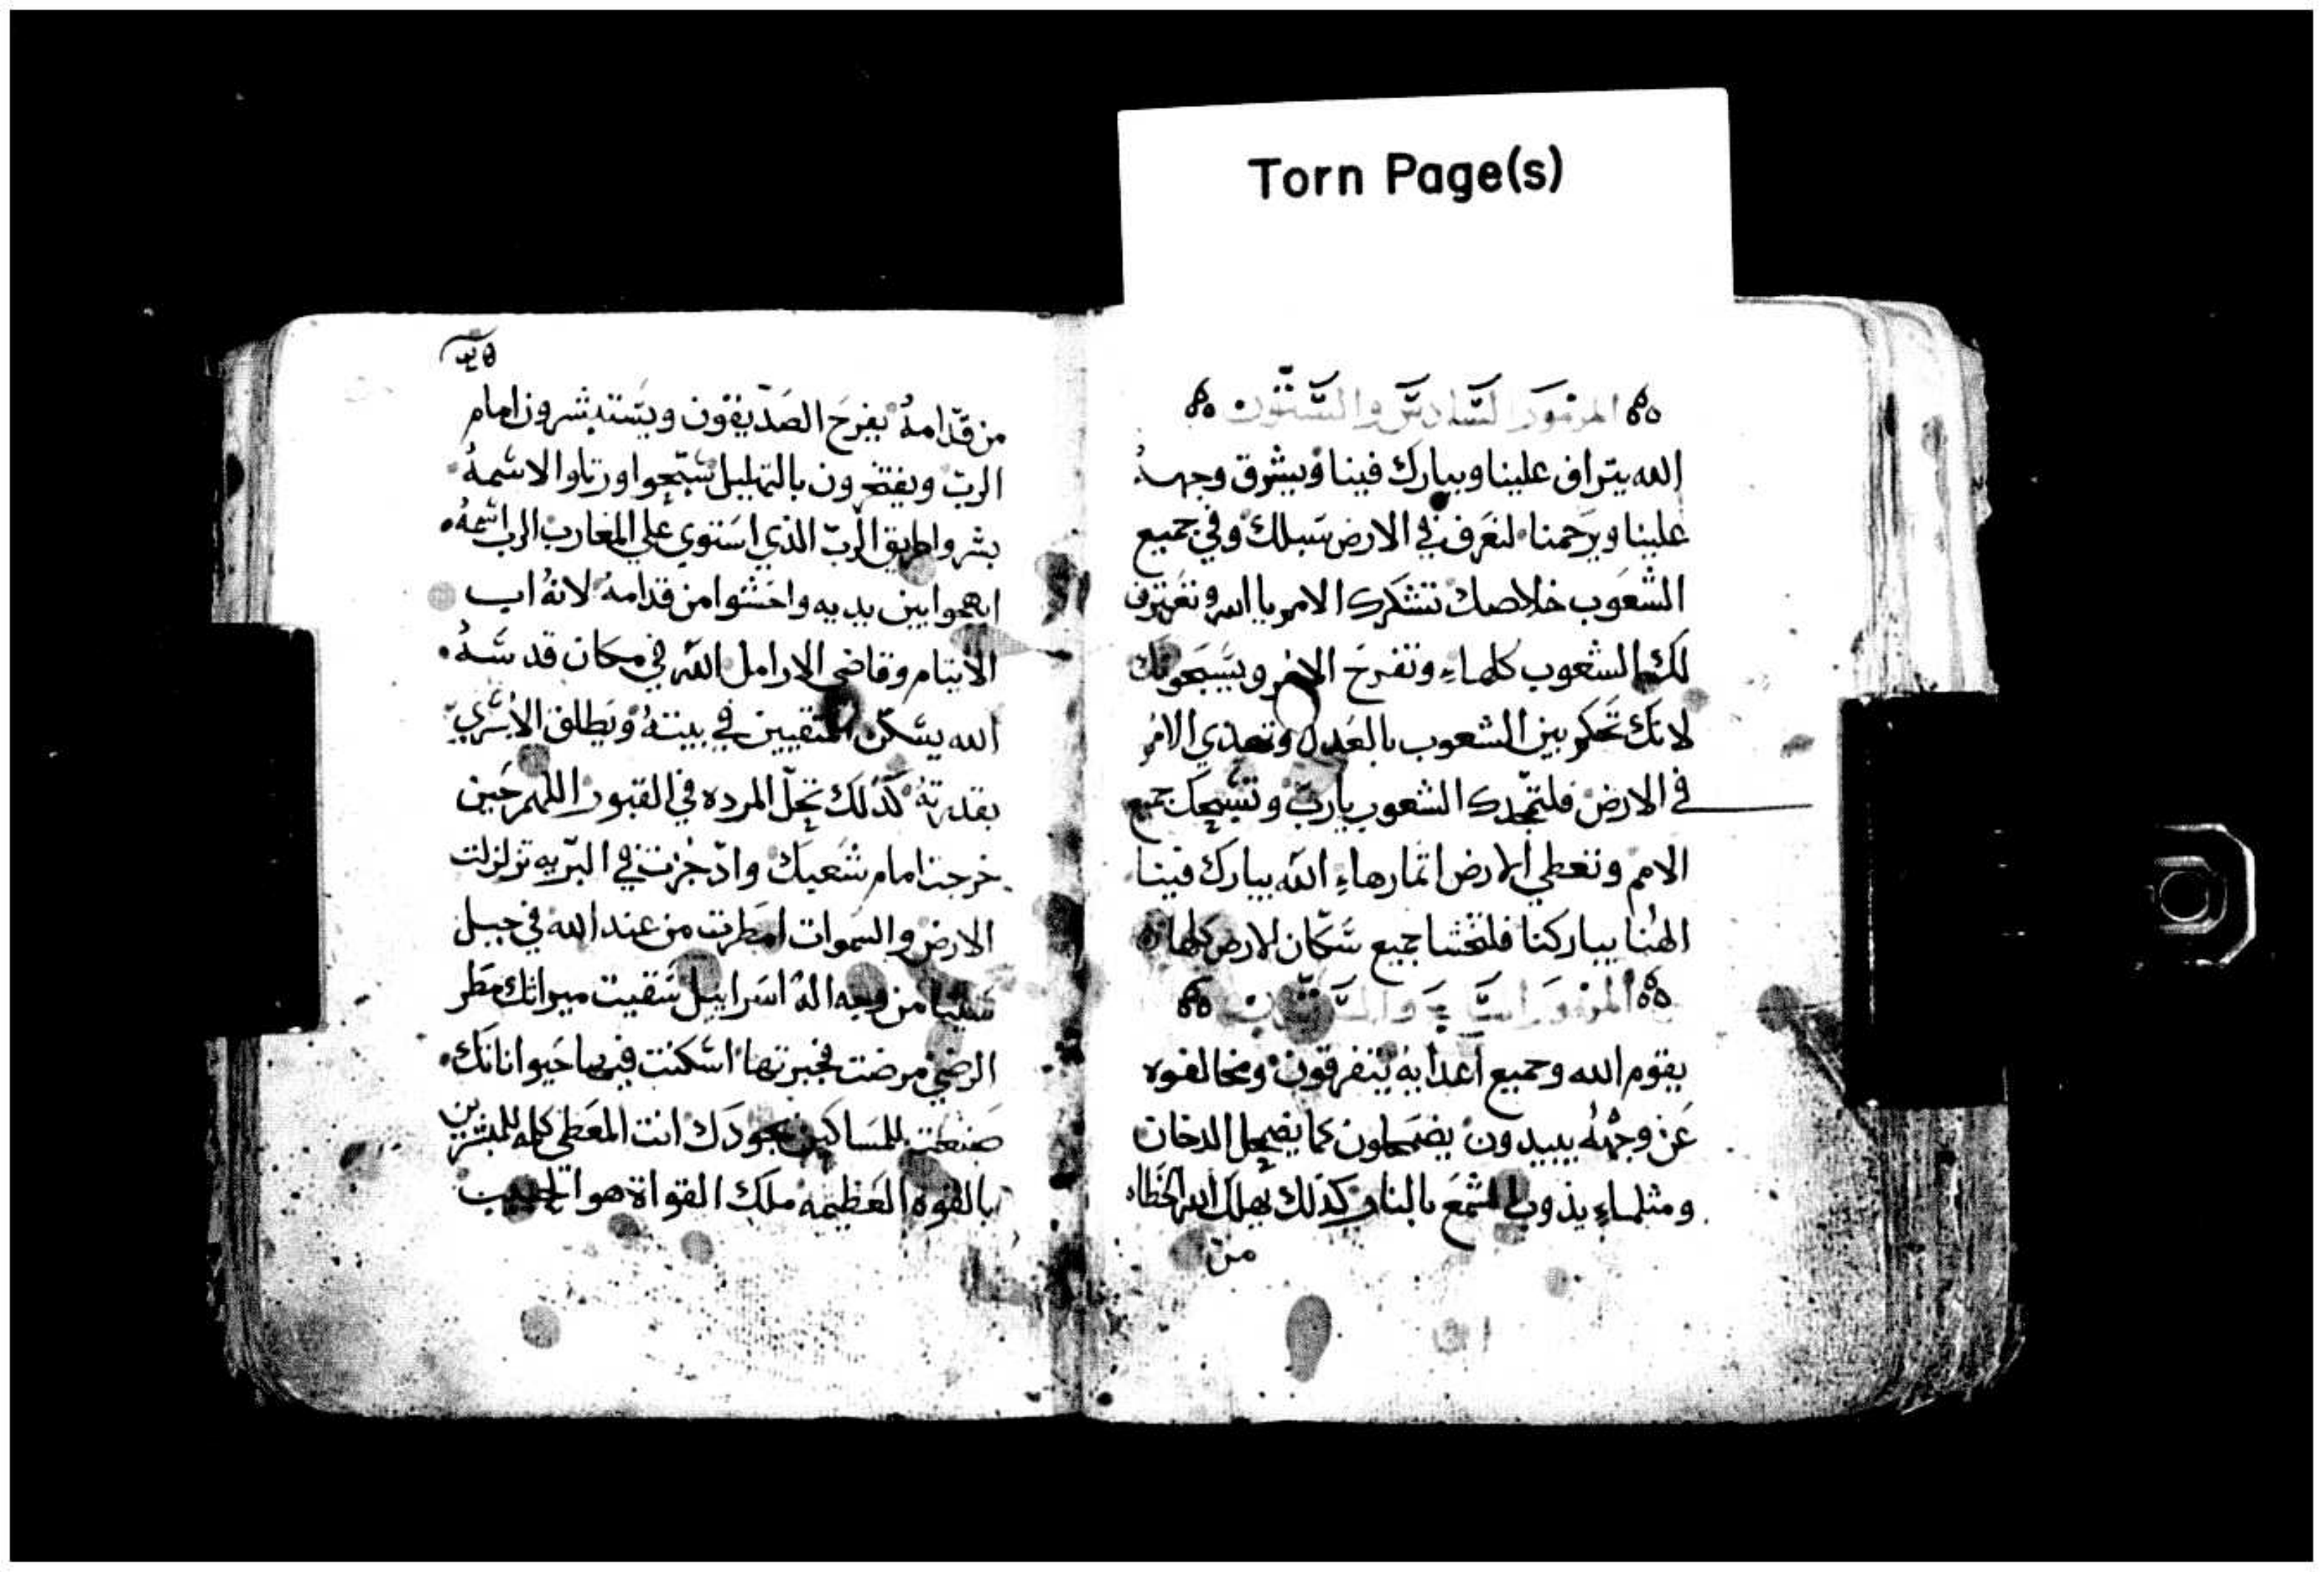 Torn Page(s)
المزمور السادس والستون
الله يتراف علينا ويبارك فينا ويشرق وجهه
علينا ويرحمنا لنعرف في الارض سبلك وفي جميع
الشعوب خلاصك تشكرك الامم يا الله وتعترف
لك الشعوب كلها وتفرح الامم ويسبحونك
لانك تحكم بين الشعوب بالعدل وتهدي الامم
في الارض فلتمجدك الشعوب يا رب وتسبحك جميع
الامم وتعطي الارض اثمارها الله يبارك فينا
الهنا يباركنا فلتخشا جميع سكان الارض كلها
المزمور السابع والستون
يقوم الله وجميع اعدايه يتفرقون ومخالفوه
عن وجهه يبيدون يضمحلون كما يضمحل الدخان
ومثلما يذوب الشمع بالنار كذلك تهلك الخطاه
من
من قدامه يفرح الصديقون ويستبشرون امام
الرب ويفتخرون بالتهليل سبحوا ورتلوا لاسمه
بشروا طريق الرب الذي استوي علي المغارب الرب اسمه
ابهجوا بين يديه واخشوا من قدامه لانه اب
الايتام وقاضي الارامل الله في مكان قدسه
الله يسكن المتقيين في بيته ويطلق الاسري
بقدرته كذلك تحل المرده في القبور اللهم حين
خرجت امام شعبك واذ جزت في البريه تزلزلت
الارض والسموات امطرت من عند الله في جبل
سينا من وجه اله اسراييل سقيت ميراثك مطر
الرضي مرضت فجبرتها اسكنت فيها حيواناتك
صنعت للمساكين بجودك انت المعطي كلمه للمبشرين
بالقوه العظيمه ملك القواة هو الحبيب